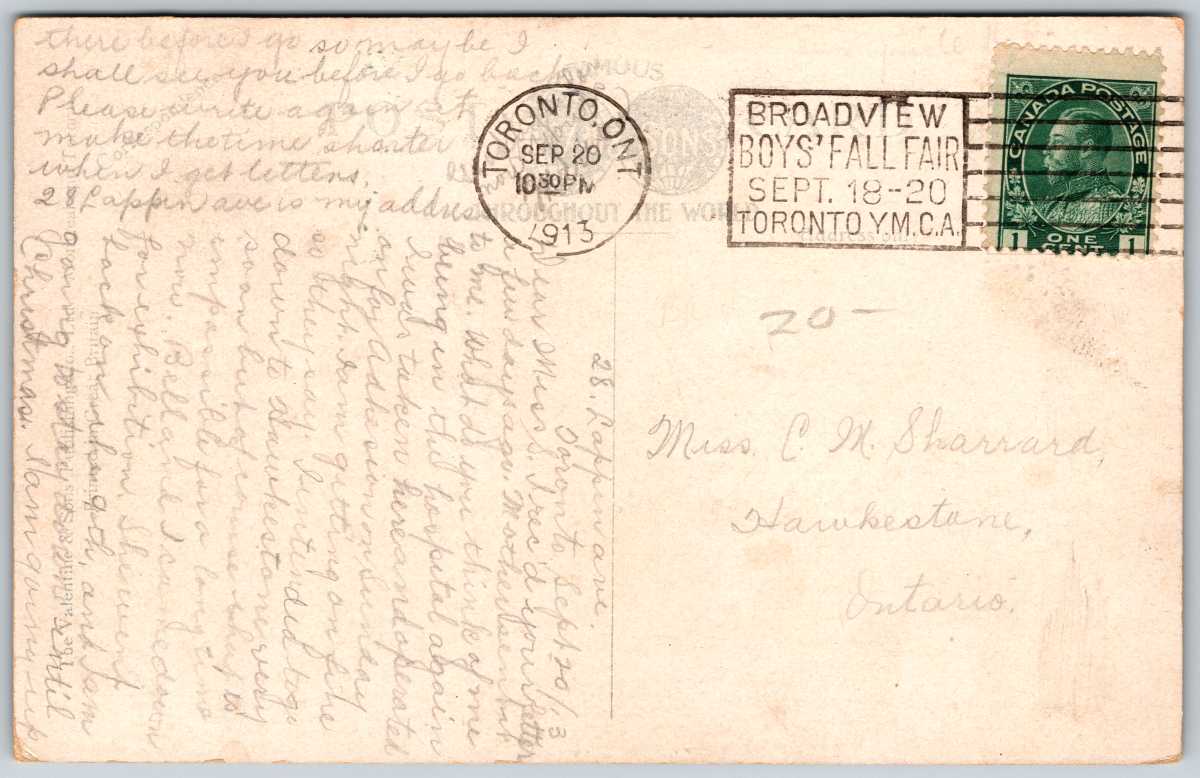 28. Lappin ave.
Toronto Sept 20/13
Dear Miss S. I rec'd your letter
a few days ago. Mother sent it
to me. What do you think of me
being in the hospital again
I was taken here and operated
on for Adhesion on Sunday
night. I am getting on fine
so they say. I intended to go
down to Hawkestone very
soon but of course that is
impossible for a long time
now. Bella and I came down
for exhibition. She went
back on when 9th, and I am
going to stay on until
Christmas. Mamma is coming up
there before I go so maybe I
shall see you before I go back.
Please write again it
make the time shorter
when I get letters.
28 Lappin ave is my address
TORONTO, ONT
SEP 20
10 30 PM
1913
BROADVIEW
BOYS' FALL FAIR
SEPT. 18-20
TORONTO Y.M.C.A.
CANADA POSTAGE
1 ONE CENT 1
FAMOUS
THROUGHOUT THE WORLD
20-
Miss. C. M. Sharrard,
Hawkestone,
Ontario.